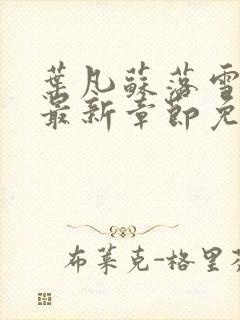 葉凡蘇落雪
最新章節免
布萊克-格里芬